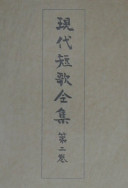 現代短歌全集
第二卷